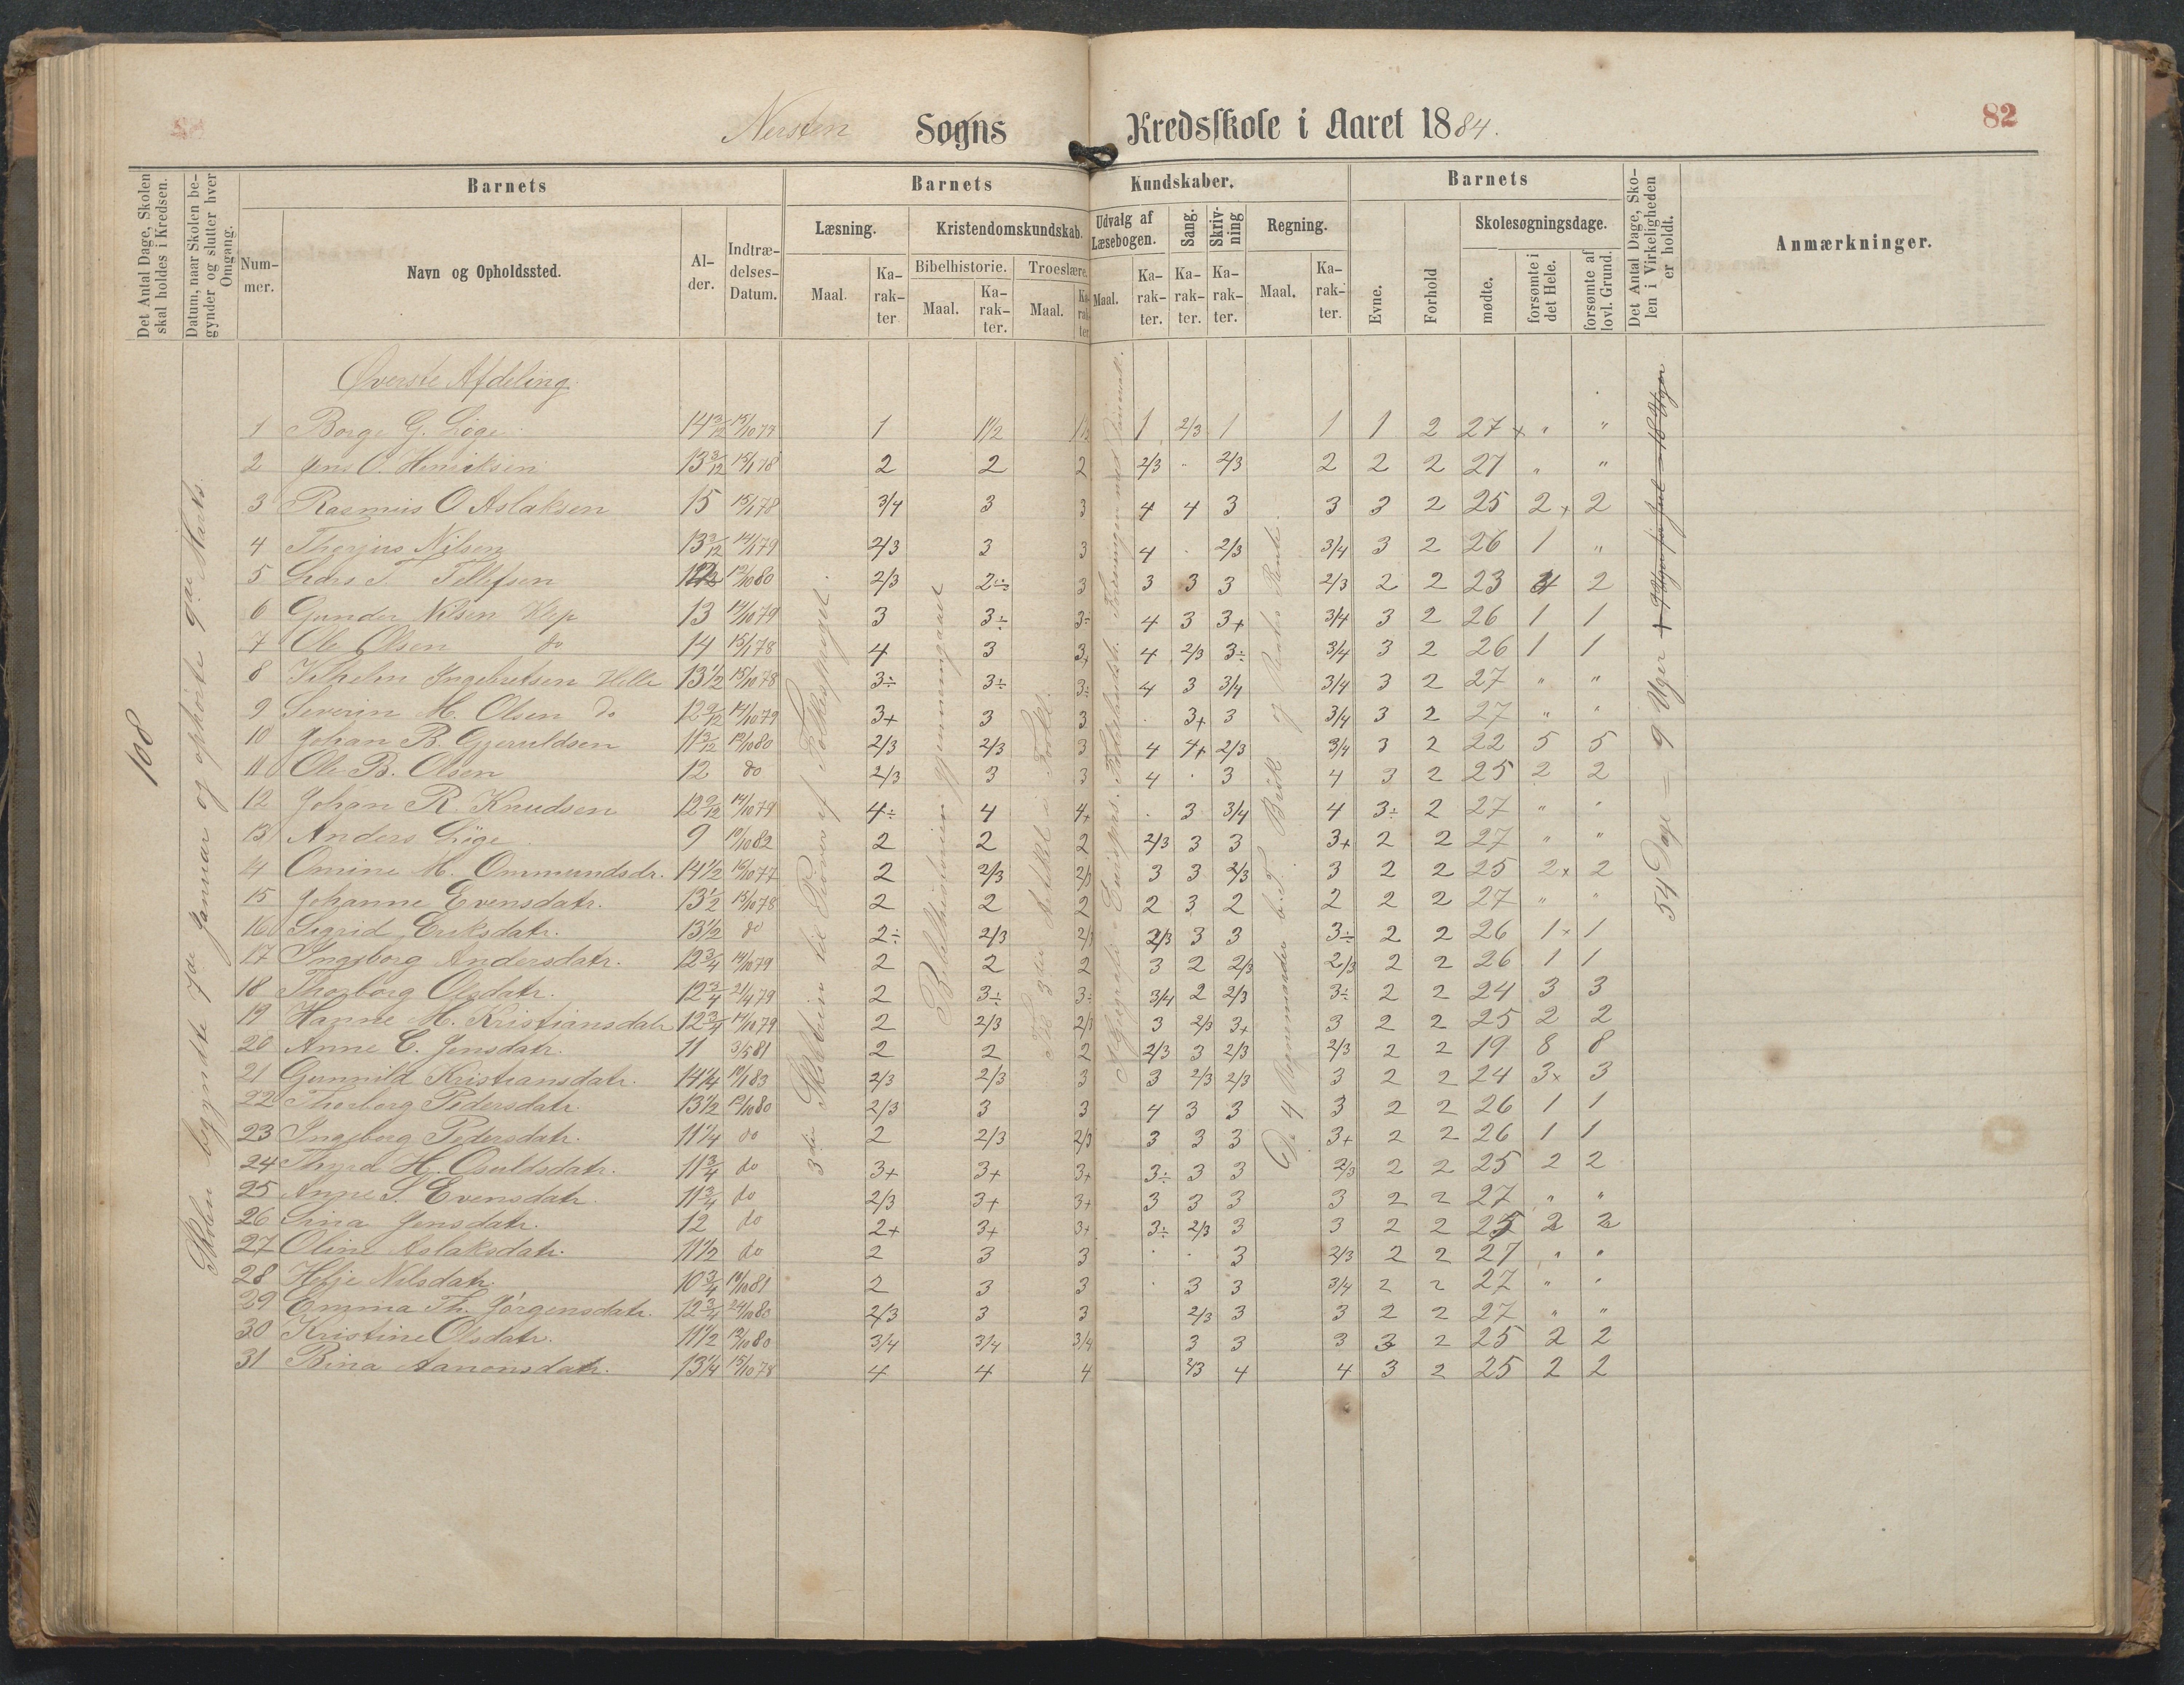 Nersten Sogns Kredsskole i Aaret 1884.
82
Det Antal Dage, Skolen skal holdes i Kredsen.
Datum, naar Skolen begynder og slutter hver Omgang.
Barnets
Nummer.
Navn og Opholdssted.
Alder.
Indtrædelses-Datum.
Barnets Kundskaber.
Læsning.
Maal.
Karakter
Kristendomskundskab.
Bibelhistorie.
Maal.
Karakter.
Troeslære.
Maal.
Karakter
Udvalg af Læsebogen.
Maal.
Karakter.
Sang.
Karakter.
Skrivning
Karakter.
Regning.
Maal.
Karakter.
Barnets
Evne.
Forhold
Skolesøgningsdage.
mødte.
forsømte i det Hele.
forsømte af lovl. Grund.
Det Antal Dage, Skolen i Virkeligheden er holdt.
Anmærkninger.
108
Skolen begyndte 7de Januar og ophørte 9de Marts.
Øverste Afdeling.
1 Borge G. Løge 14 3/12 15/10 77 1 1 1/2 1 1/2 1 2/3 1 1 1 2 27 x " "
2 Jens O. Henriksen 13 3/12 15/1 78 2 2 2 2/3 . 2/3 2 2 2 27 " "
3 Rasmus O. Aslaksen 15 15/1 78 3/4 3 3 4 4 3 3 3 2 25 2 x 2
4 Therjus Nilsen 13 3/12 14/1 79 2/3 3 3 4 . 2/3 3/4 3 2 26 1 "
5 Lars T. Tellefsen 12/10 80 2/3 2÷ 3 3 3 3 2/3 2 2 23 4 2
6 Gunder Nilsen Klep 13 14/10 79 3 3÷ 3÷ 4 3 3+ 3/4 3 2 26 1 1
7 Ole Olsen do 14 15/1 78 4 3 3+ 4 2/3 3÷ 3/4 3 2 26 1 1
8 Vilhelm Ingebretsen Helle 13 1/2 15/10 78 3÷ 3÷ 3÷ 4 3 3/4 3/4 3 2 27 " "
9 Severin M. Olsen do 12 9/12 14/10 79 3+ 3 3 . 3+ 3 3/4 3 2 27 " "
10 Johan B. Gjeruldsen 11 3/12 12/10 80 2/3 2/3 3 4 4+ 2/3 3/4 3 2 22 5 5
11 Ole B. Olsen 12 do 2/3 3 3 4 . 3 4 3 2 25 2 2
12 Johan R. Knudsen 12 9/12 14/10 79 4÷ 4 4+ . 3 3/4 4 3÷ 2 27 " "
13 Anders Løge 9 10/10 82 2 2 2 2/3 3 3 3+ 2 2 27 " "
14 Omine M. Ommundsdr. 14 1/2 16/10 77 2 2/3 2/3 3 3 2/3 3 2 2 25 2 x 2
15 Johanne Evensdatr. 13 1/2 15/10 78 2 2 2 2 3 2 2 2 2 27 " "
16 Sigrid Eriksdatr. 13 1/2 do 2÷ 2/3 2/3 2/3 3 3 3÷ 2 2 26 1 x 1
17 Ingeborg Andersdatr. 12 3/4 14/10 79 2 2 2 3 2 2/3 2/3 2 2 26 1 1
18 Thorborg Olsdatr. 12 3/4 21/4 79 2 3÷ 3÷ 3/4 2 2/3 3÷ 2 2 24 3 3
19 Hanne M. Kristiansdatr 12 3/4 14/10 79 2 2/3 2/3 3 2/3 3+ 3 2 2 25 2 2
20 Anne C. Jensdatr. 11 3/5 81 2 2 2 2/3 3 2/3 2/3 2 2 19 8 8
21 Gunnild Kristiansdatr. 14 1/4 10/1 83 2/3 2/3 3 3 2/3 2/3 3 2 2 24 3 x 3
22 Thorborg Pedersdatr. 13 1/2 12/10 80 2/3 3 3 4 3 3 3 2 2 26 1 1
23 Ingeborg Pedersdatr. 11 1/4 do 2 2/3 2/3 3 3 3 3+ 2 2 26 1 1
24 Thyra H. Osuldsdatr. 11 3/4 do 3+ 3+ 3+ 3÷ 3 3 2/3 2 2 25 2 2
25 Anne S. Evensdatr. 11 3/4 do 2/3 3+ 3+ 3 3 3 3 2 2 27 " "
26 Sina Jensdatr. 12 do 2+ 3+ 3+ 3÷ 2/3 3 3 2 2 25 2 2
27 Oline Aslaksdatr. 11 1/2 do 2 3 3 . . 3 2/3 2 2 27 " "
28 Helje Nilsdatr. 10 3/4 10/10 81 2 3 3 . 3 3 3/4 2 2 27 " "
29 Emma Th. Jørgensdatr. 12 3/4 24/10 80 2/3 3 3 2/3 3 3 2 2 27 " "
30 Kristine Olsdatr. 11 1/2 12/10 80 3/4 3/4 3/4 3 3 3 3 2 25 2 2
31 Bina Aanonsdatr. 13 1/4 15/10 78 4 4 4 2/3 4 4 3 2 25 2 2
3die Skoletrin til Prøver af Folkesproget.
Bibelhistorien gjennemgaaet
Til 3die Artikel i Forkl.
De 4 Regnemaader b. T. Brøk og Renters Rente.
54 Dage = 9 Uger